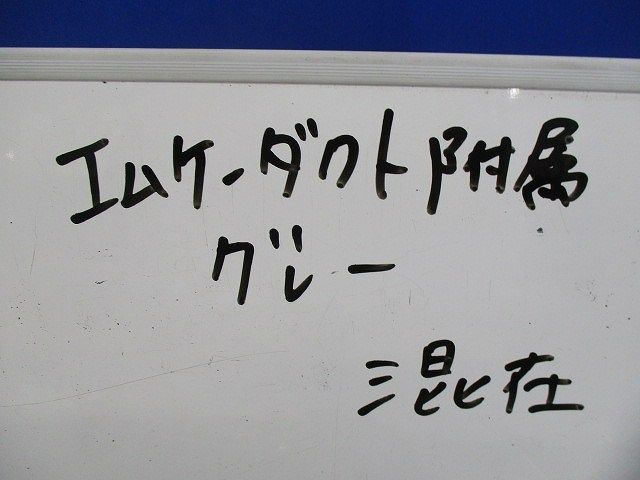 エムケーダクト附属
グレー
混在